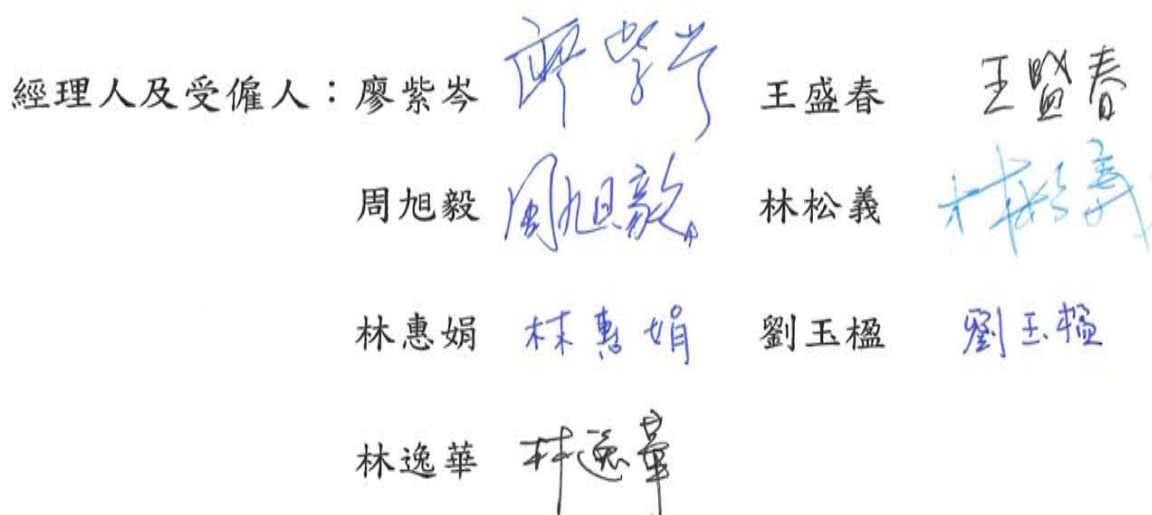 經理人及受僱人：廖紫岑 廖紫岑 王盛春 王盛春
周旭毅 周旭毅 林松義 林松義
林惠娟 林惠娟 劉玉楹 劉玉楹
林逸華 林逸華